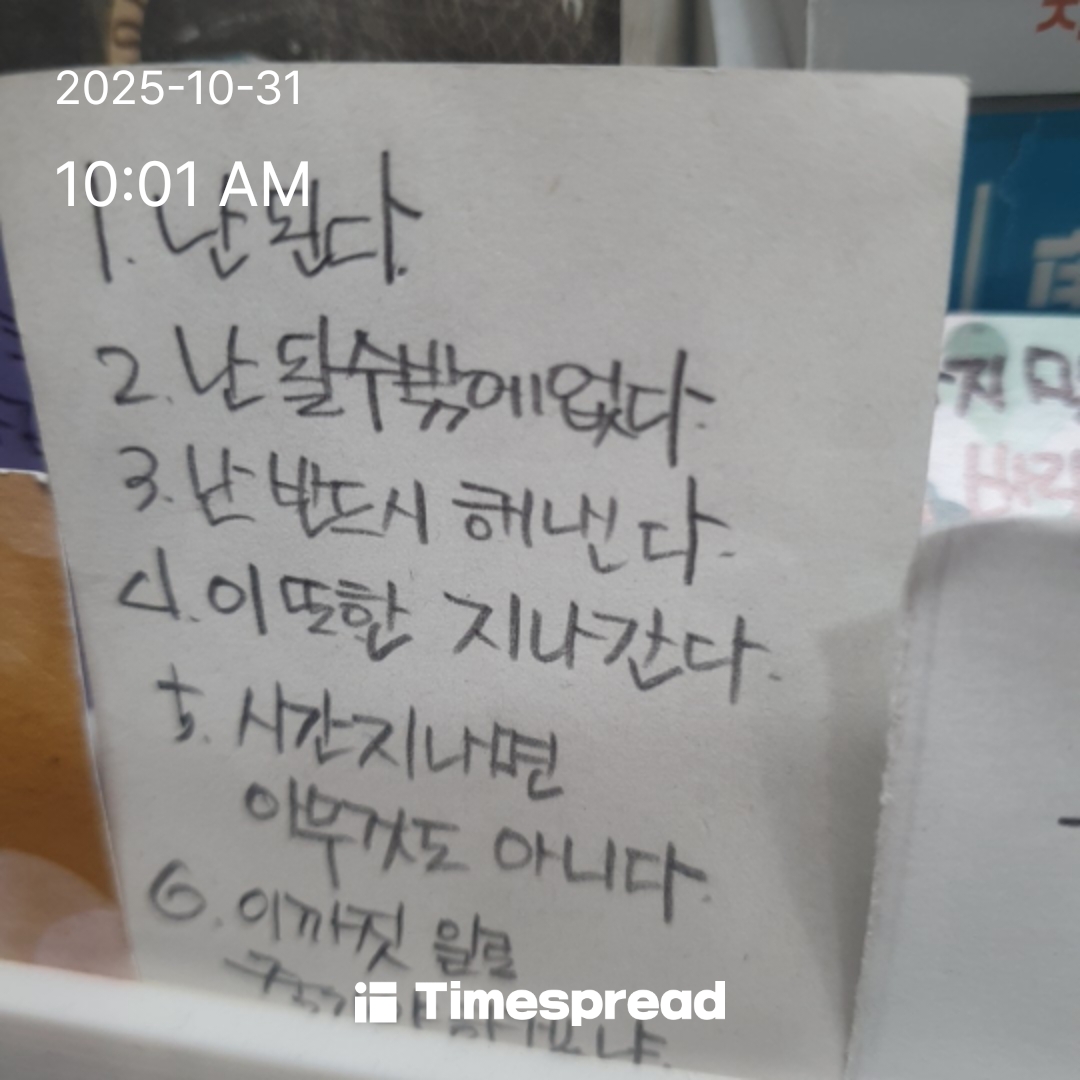 2025-10-31
10:01 AM
1. 난 된다.
2. 난 될수밖에없다.
3. 난 반드시 해낸다.
4. 이또한 지나간다.
5. 시간지나면
아무것도 아니다.
6. 이까짓 일로
Timespread